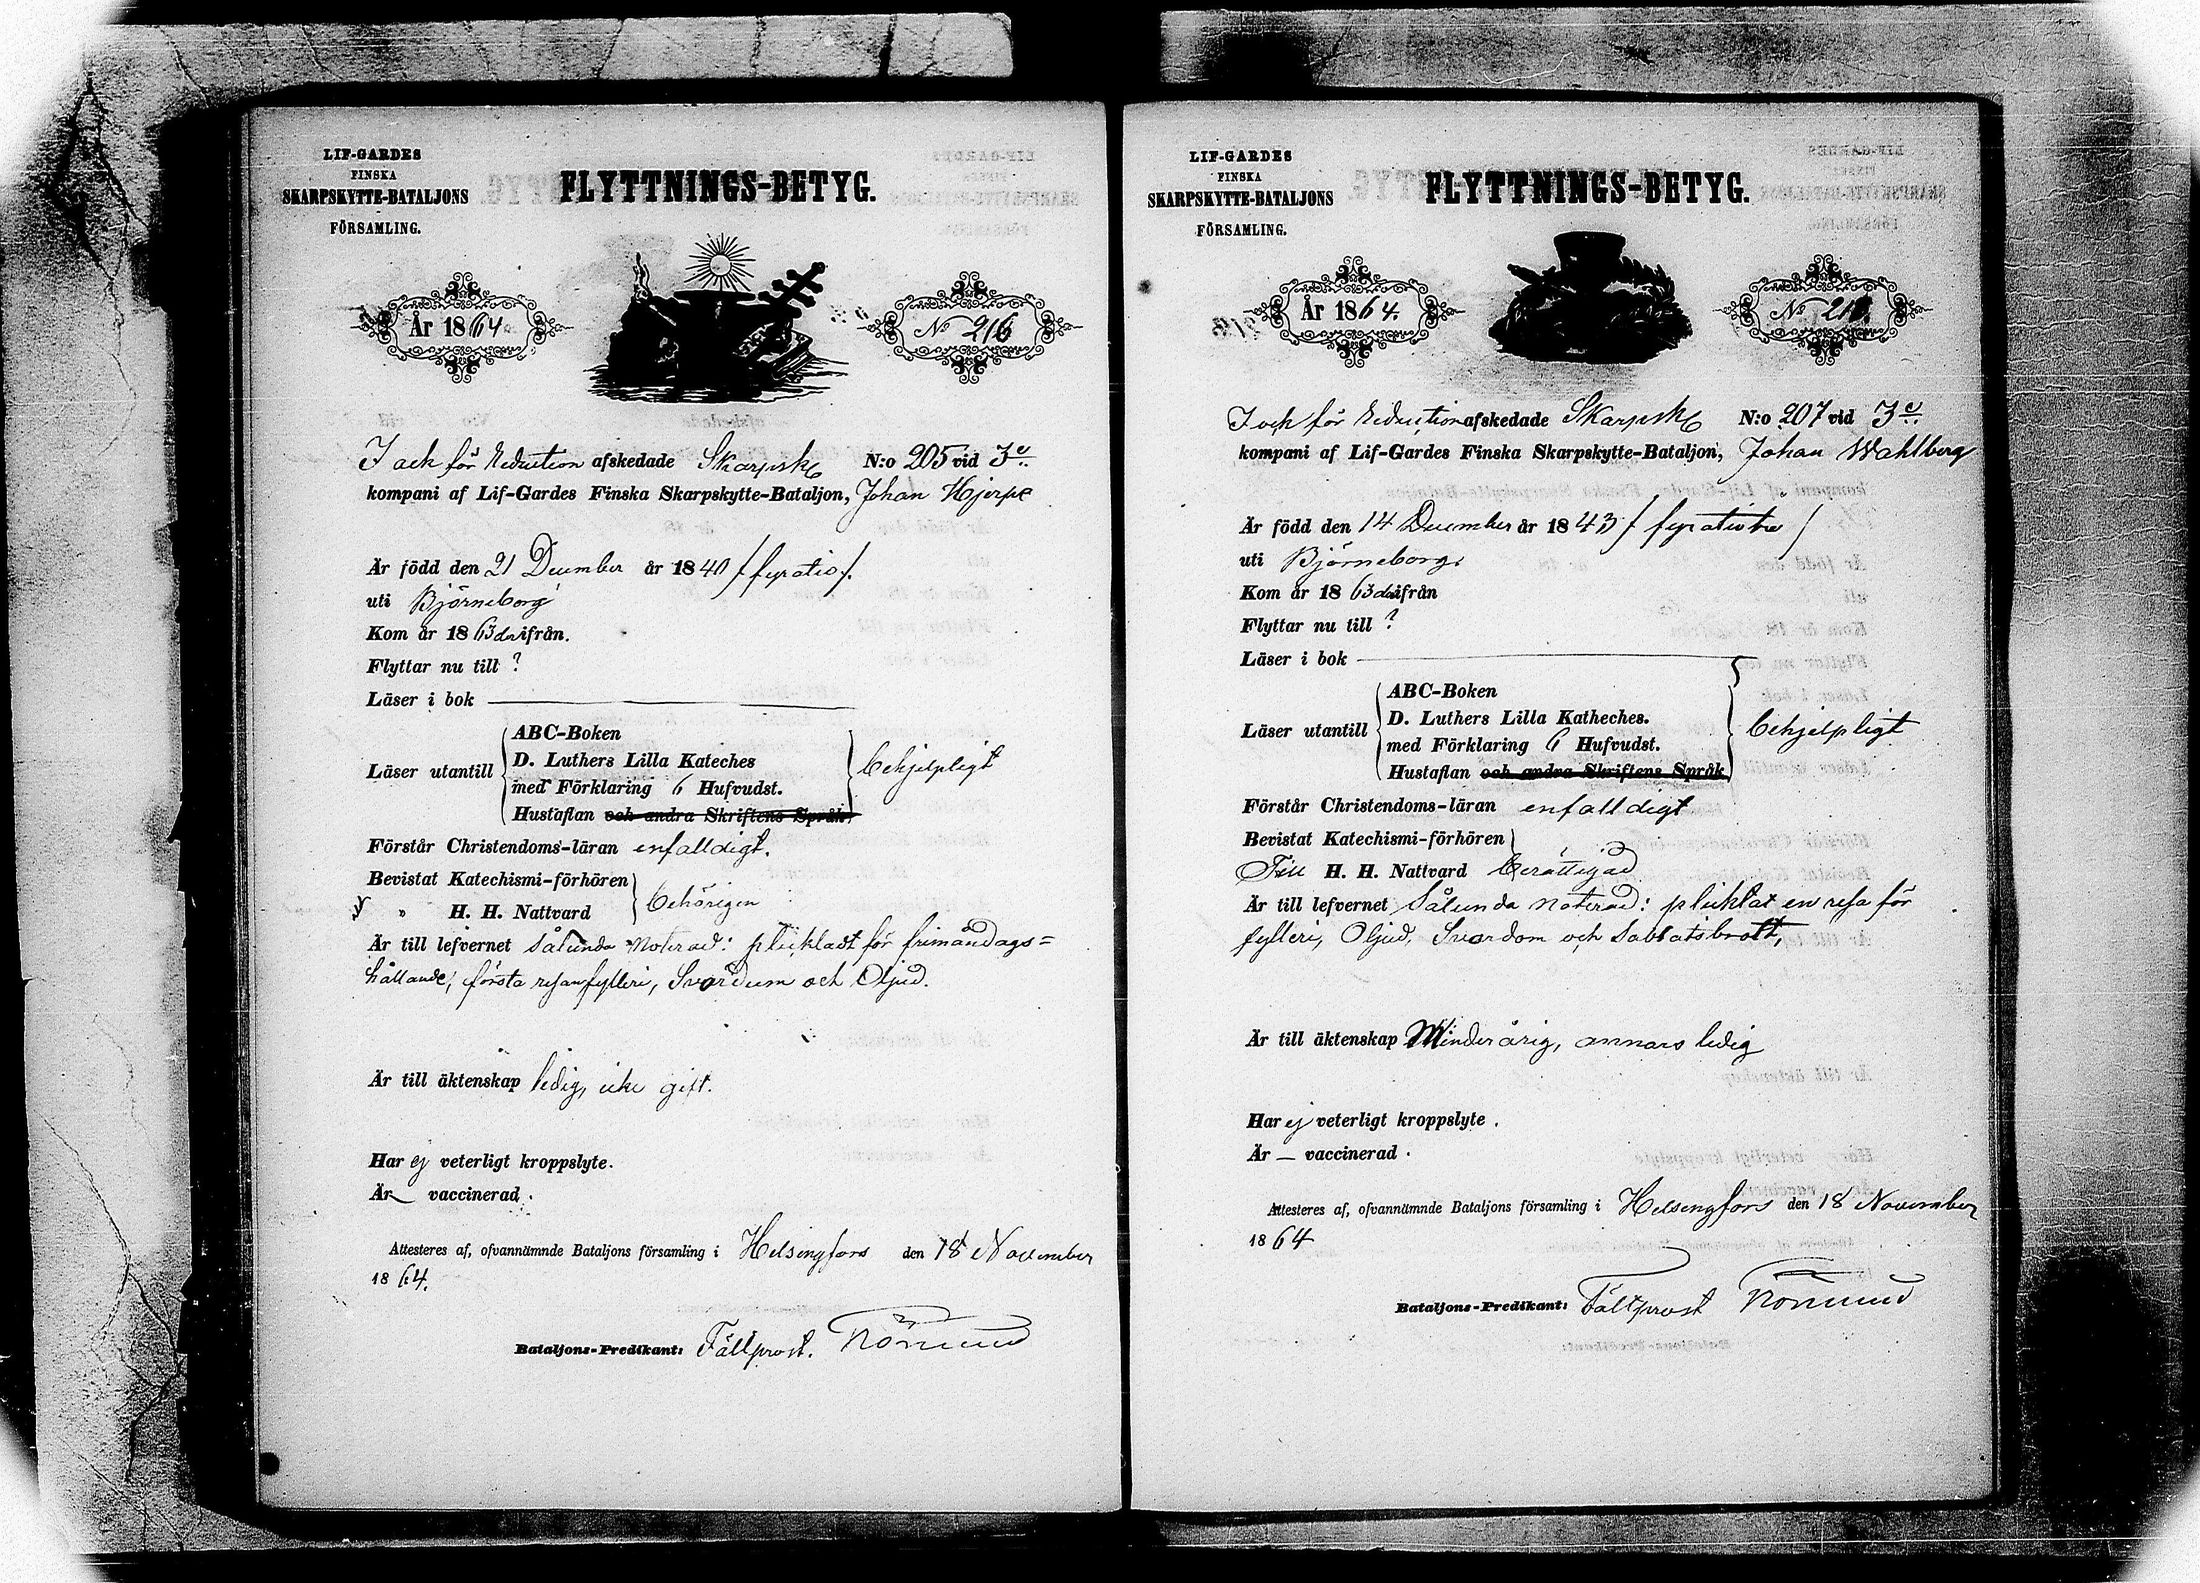 LIF-GARDES
FINSKA
SKARPSKYTTE-BATALJONS
FÖRSAMLING.
FLYTTNINGS-BETYG.
År 1864.
No 216
I och för Reduction afskedade Skarpsk N:o 205 vid 3e
kompani af Lif-Gardes Finska Skarpskytte-Bataljon, Johan Hjerpe
Är född den 21 December år 1840 /fyratio/.
uti Björneborg
Kom år 1863 derifrån.
Flyttar nu till ?
Läser i bok
Läser utantill
ABC-Boken
D. Luthers Lilla Kateches
med Förklaring 6 Hufvudst.
Hustaflan och andra Skriftens Språk
behjelpligt
Förstår Christendoms-läran enfalldigt.
Bevistat Katechismi-förhören
" H. H. Nattvard
behörigen
Är till lefvernet Sålunda Noterad: pliktadt för frimåndags=
hållande, första resan fylleri, Svordom och Oljud.
Är till äktenskap ledig, icke gift.
Har ej veterligt kroppslyte.
Är — vaccinerad.
Attesteres af, ofvannämnde Bataljons församling i Helsingfors den 18 November
1864.
Bataljons-Predikant: Fältprost.
LIF-GARDES
FINSKA
SKARPSKYTTE-BATALJONS
FÖRSAMLING.
FLYTTNINGS-BETYG.
År 1864.
No
I och för Reduction afskedade Skarpsk N:o 207 vid 3e
kompani af Lif-Gardes Finska Skarpskytte-Bataljon, Johan Wahlberg
Är född den 14 December år 1843 / fyratiotre /
uti Björneborg.
Kom år 1863 derifrån
Flyttar nu till ?
Läser i bok
Läser utantill
ABC-Boken
D. Luthers Lilla Katheches.
med Förklaring 6 Hufvudst.
Hustaflan och andra Skriftens Språk
behjelpligt
Förstår Christendoms-läran enfalldigt
Bevistat Katechismi-förhören
Till H. H. Nattvard berättigad
Är till lefvernet Sålunda Noterad: pliktat en resa för
fylleri, Oljud, Svordom och Sabbatsbrott,
Är till äktenskap Minderårig, annars ledig
Har ej veterligt kroppslyte.
Är — vaccinerad.
Attesteres af, ofvannämnde Bataljons församling i Helsingfors den 18 November
1864
Bataljons-Predikant: Fältprost